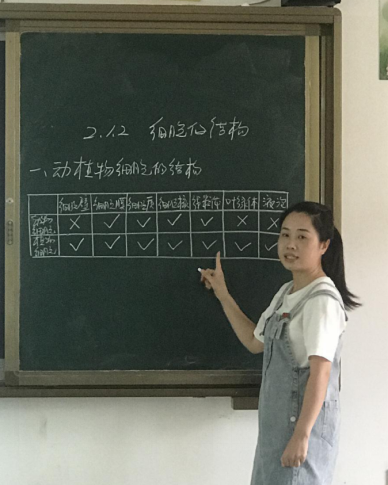 2.1.2 细胞的结构
一、动植物细胞的结构
细胞壁 细胞膜 细胞质 细胞核 线粒体 叶绿体 液泡
动物细胞 × ✓ ✓ ✓ ✓ × ×
植物细胞 ✓ ✓ ✓ ✓ ✓ ✓ ✓